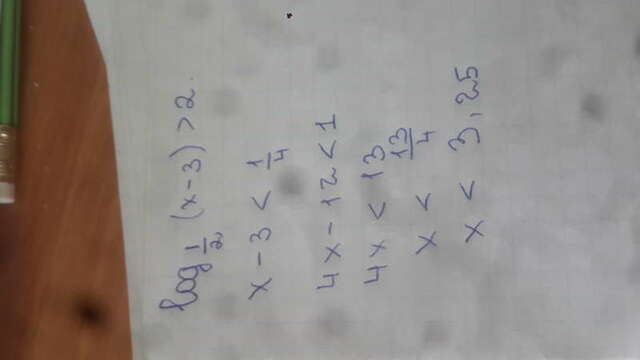 log 1/2 (x-3) > 2.
x - 3 < 1/4
4x - 12 < 1
4x < 13
x < 13/4
x < 3,25